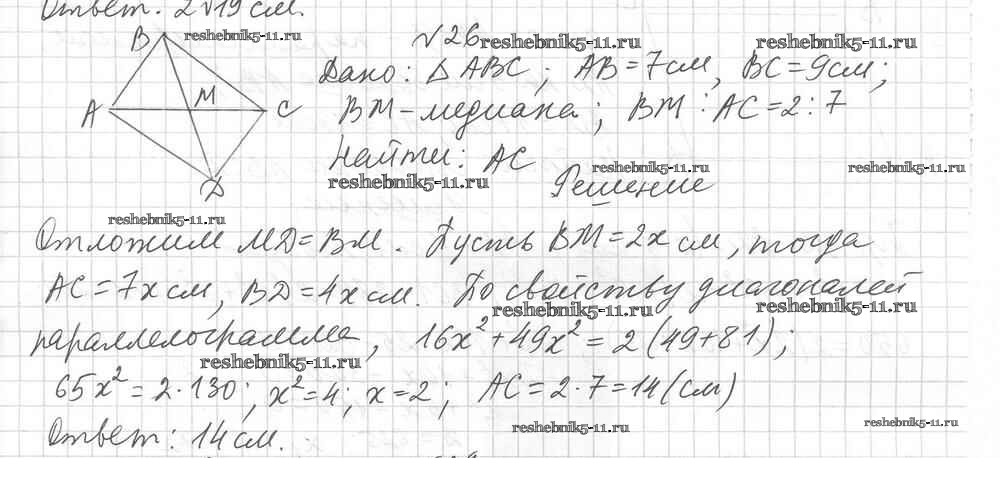 Ответ: 2√19 см.
B reshebnik5-11.ru √26 reshebnik5-11.ru reshebnik5-11.ru
Дано: Δ ABC; AB=7см, BC=9см;
A M C BM-медиана; BM:AC=2:7
Найти: AC reshebnik5-11.ru reshebnik5-11.ru
D reshebnik5-11.ru Решение
reshebnik5-11.ru
Отложим MD=BM. Пусть BM=2x см, тогда
AC=7x см, BD=4x см. По свойству диагоналей
reshebnik5-11.ru reshebnik5-11.ru
параллелограмма, 16x²+49x²=2(49+81);
reshebnik5-11.ru
65x²=2·130; x²=4; x=2; AC=2·7=14(см)
Ответ: 14 см. reshebnik5-11.ru reshebnik5-11.ru